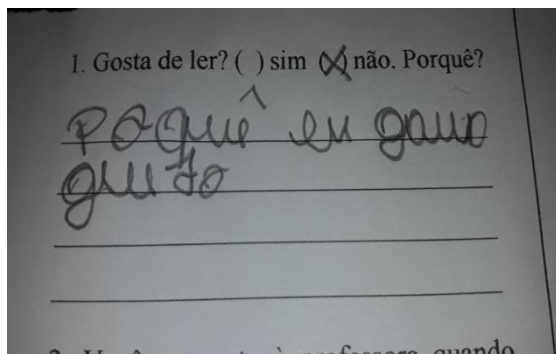 1. Gosta de ler? ( ) sim (X) não. Porquê?
poquê eu gauo
guito
quando